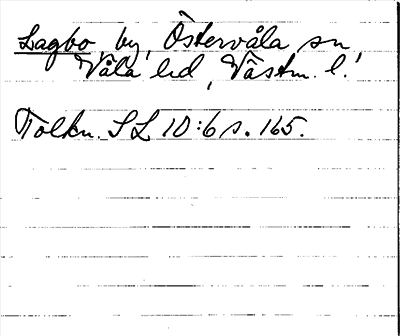 Lagbo, by, Östervåla sn,
Våla hd, Västm. l.
Tolkn. SL 10:6 s. 165.